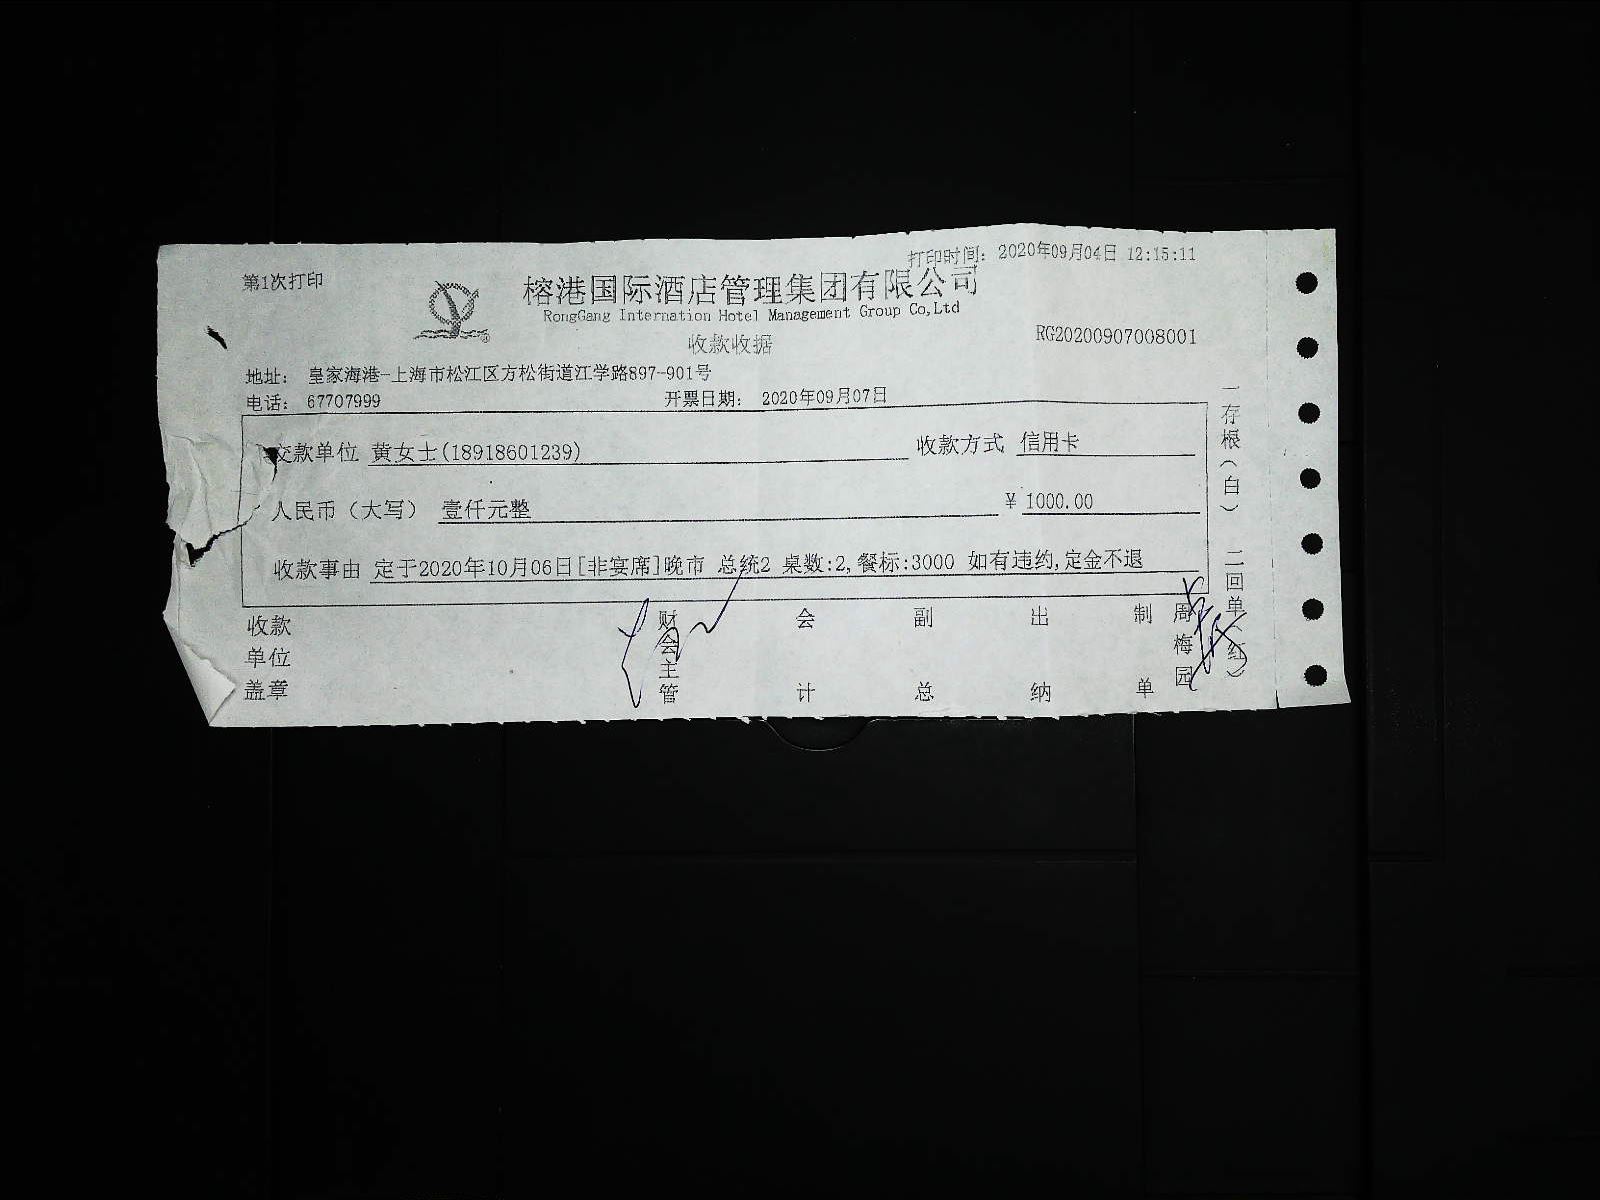 打印时间: 2020年09月04日 12:15:11
第1次打印
榕港国际酒店管理集团有限公司
RongGang Internation Hotel Management Group Co,Ltd
收款收据
RG20200907008001
地址: 皇家海港-上海市松江区方松街道江学路897-901号
电话: 67707999 开票日期: 2020年09月07日
交款单位 黄女士(18918601239) 收款方式 信用卡
人民币（大写） 壹仟元整 ¥ 1000.00
收款事由 定于2020年10月06日[非宴席]晚市 总统2 桌数:2,餐标:3000 如有违约,定金不退
收款单位盖章
财会主管
会计
副总
出纳
制单
周梅园
一存根（白） 二回单（红）